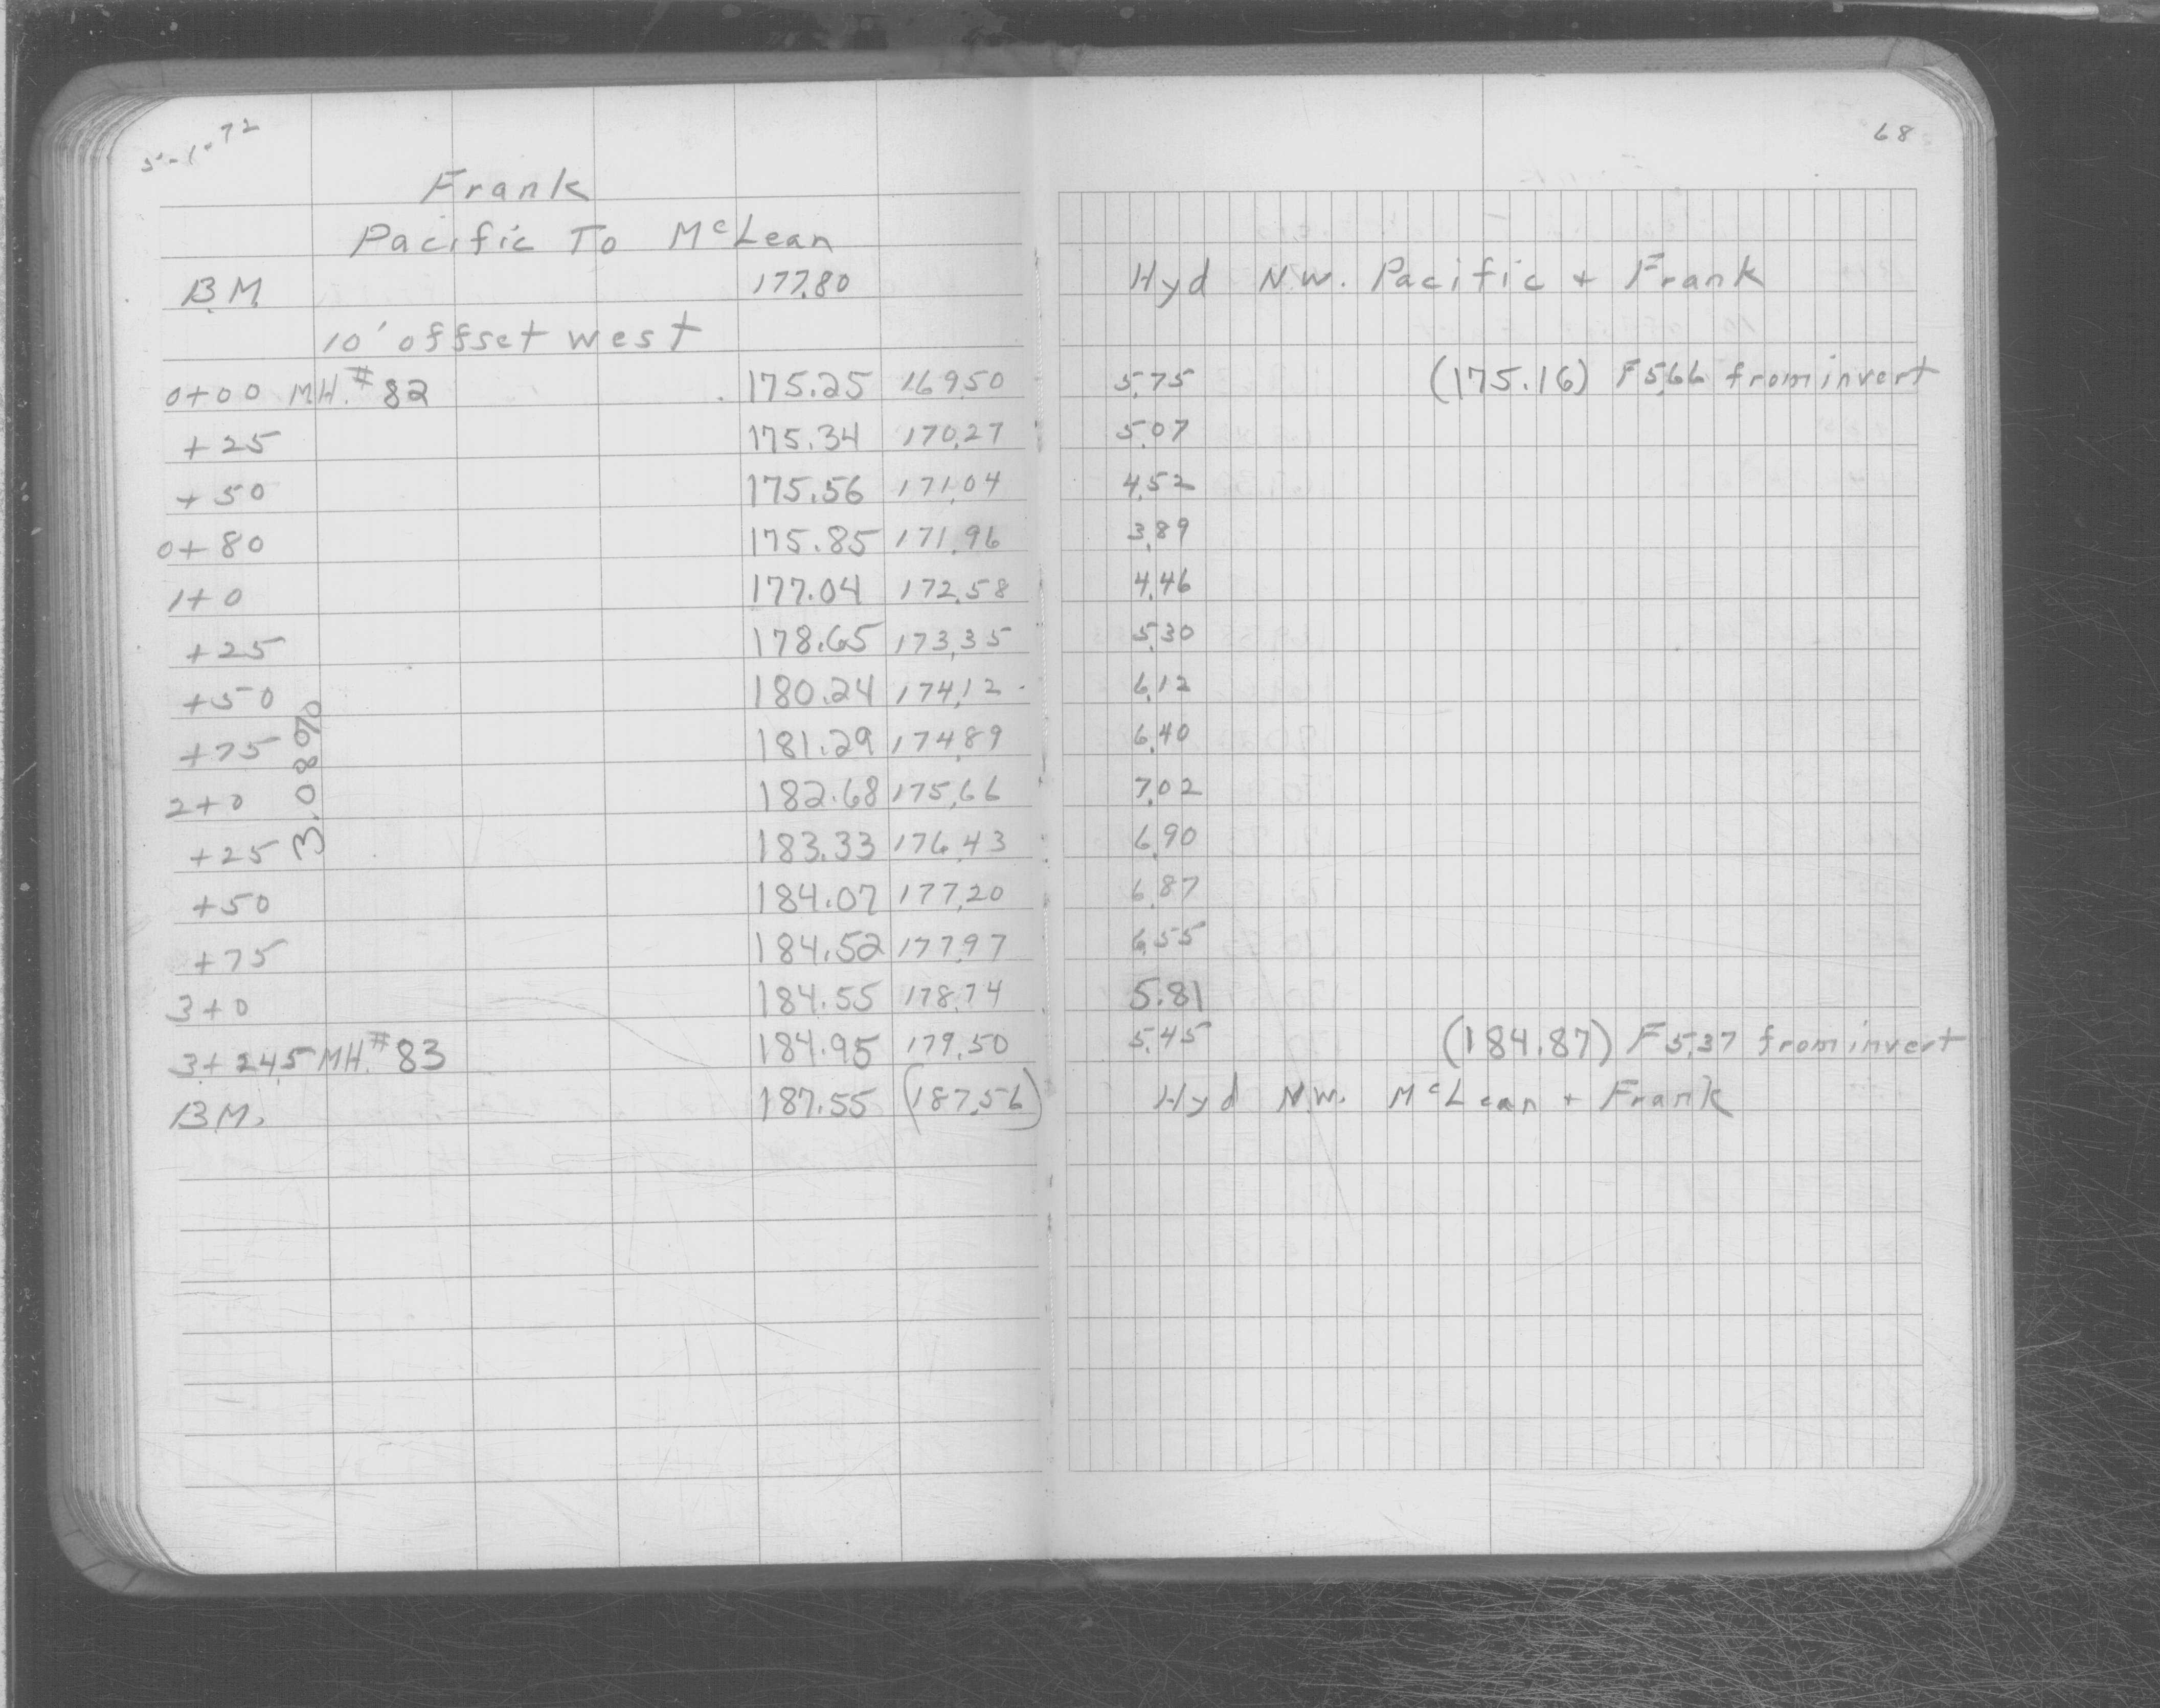 5-1-72
68
Frank
Pacific To McLean
B.M. 177.80 Hyd N.W. Pacific + Frank
10' offset west
0+00 MH.# 82 175.25 169.50 5.75 (175.16) F 5.66 from invert
+25 175.34 170.27 5.07
+50 175.56 171.04 4.52
0+80 175.85 171.96 3.89
1+0 177.04 172.58 4.46
+25 178.65 173.35 5.30
+50 180.24 174.12 6.12
+75 181.29 174.89 6.40
2+0 182.68 175.66 7.02
+25 183.33 176.43 6.90
+50 184.07 177.20 6.87
+75 184.52 177.97 6.55
3+0 184.55 178.74 5.81
3+24.5 MH.# 83 184.95 179.50 5.45 (184.87) F 5.37 from invert
B.M. 187.55 (187.56) Hyd N.W. McLean + Frank
3.08%